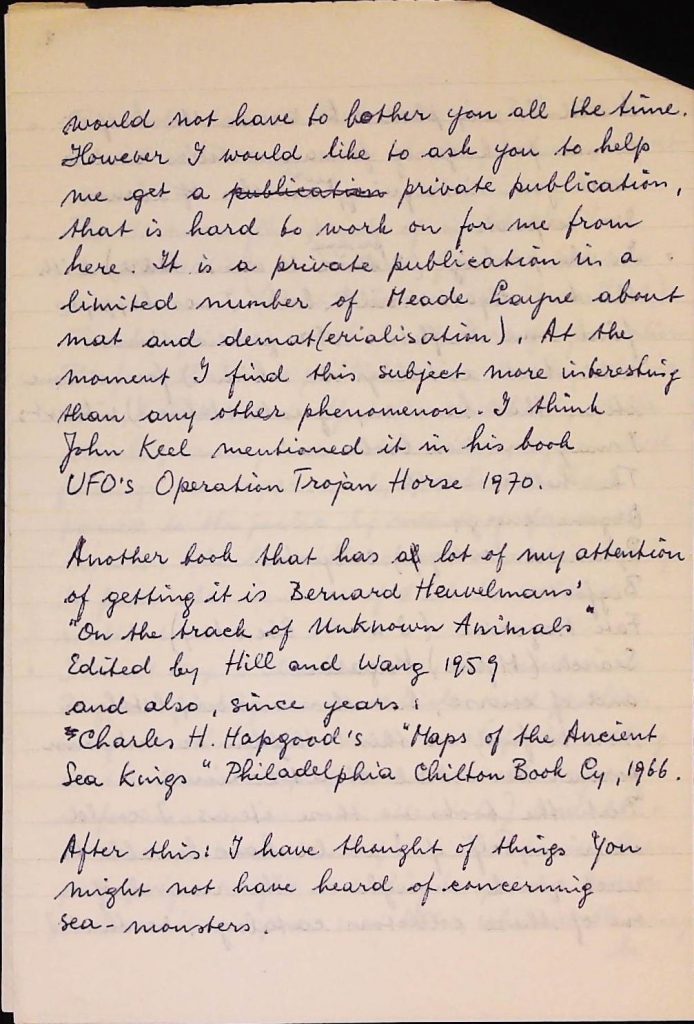 would not have to bother you all the time.
However I would like to ask you to help
me get a publication private publication,
that is hard to work on for me from
here. It is a private publication in a
limited number of Meade Layne about
mat and demat(erialisation). At the
moment I find this subject more interesting
than any other phenomenon. I think
John Keel mentioned it in his book
UFO's Operation Trojan Horse 1970.
Another book that has a lot of my attention
of getting it is Bernard Heuvelmans'
"On the track of Unknown Animals"
Edited by Hill and Wang 1959
and also, since years:
Charles H. Hapgood's "Maps of the Ancient
Sea Kings" Philadelphia Chilton Book Cy, 1966.
After this: I have thought of things You
might not have heard of concerning
sea-monsters.